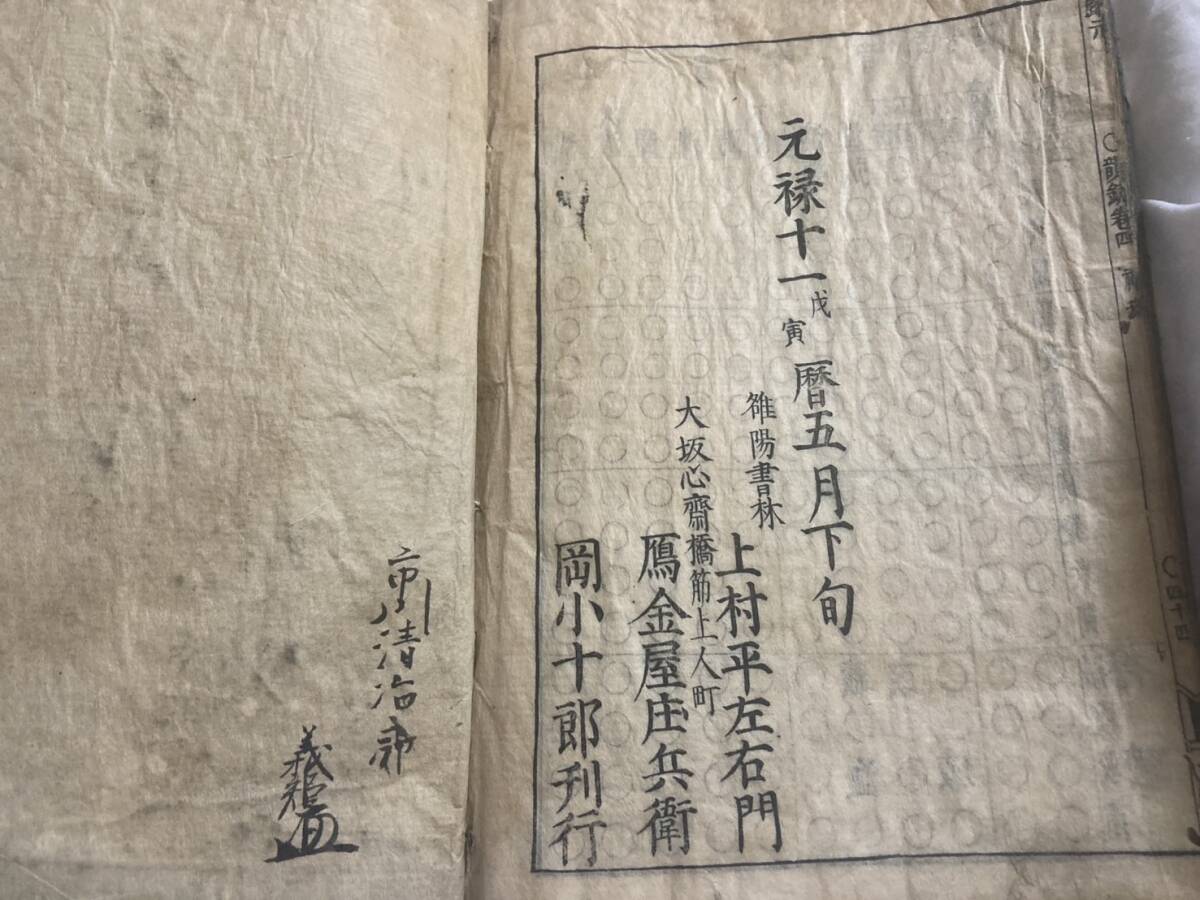 元禄十一戊寅暦五月下旬
雒陽書林
上村平左右門
大坂心齋橋筋上人町
鴈金屋庄兵衛
岡小十郎刋行
清治郎